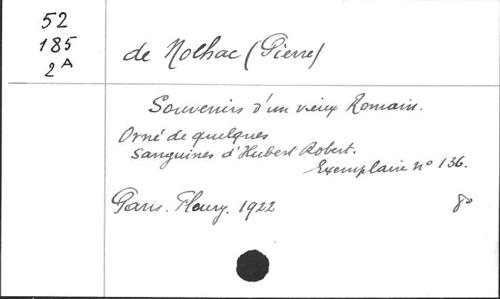 52
185
2A
de Nolhac (Pierre)
Souvenirs d'un vieux Romain.
Orné de quelques
Sanguines d'Hubert Robert.
Exemplaire n° 136.
Paris. Floury. 1922
8°